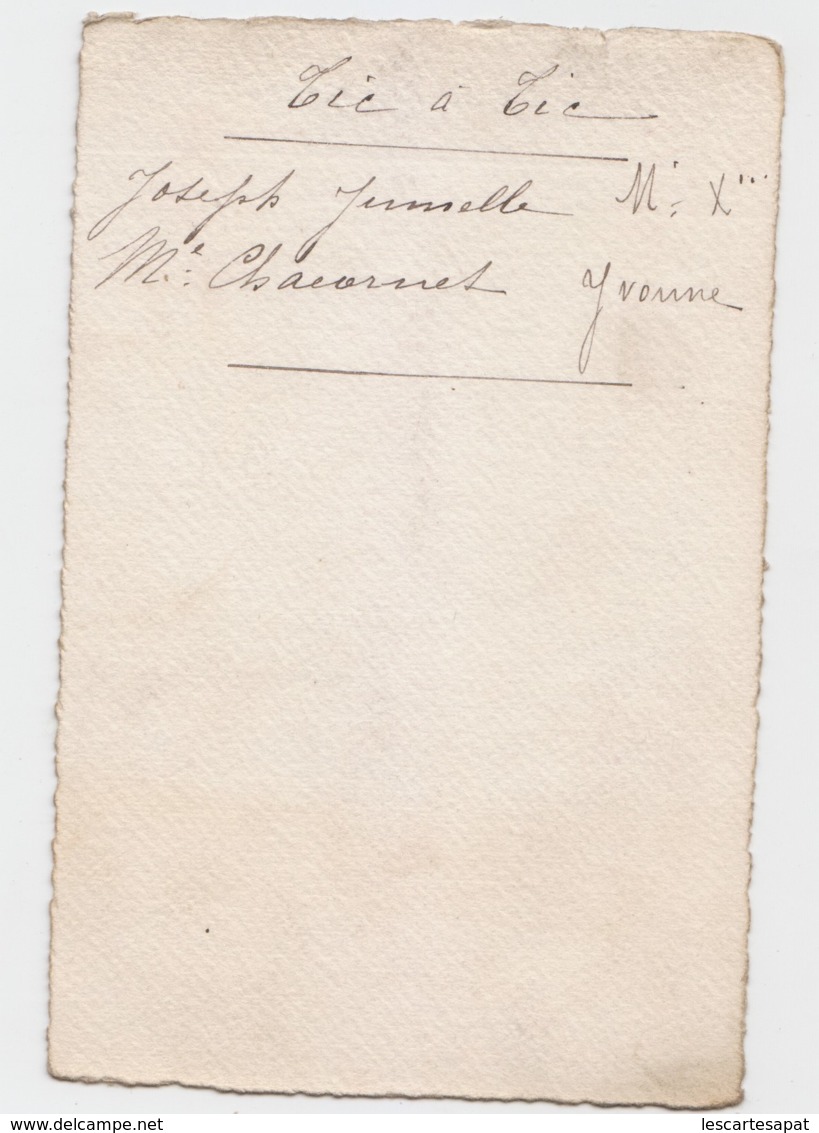 Tic à Tic
Joseph Jumelle Mr. X...
Me. Chacornet Yvonne
delcampe.net
lescartesapat